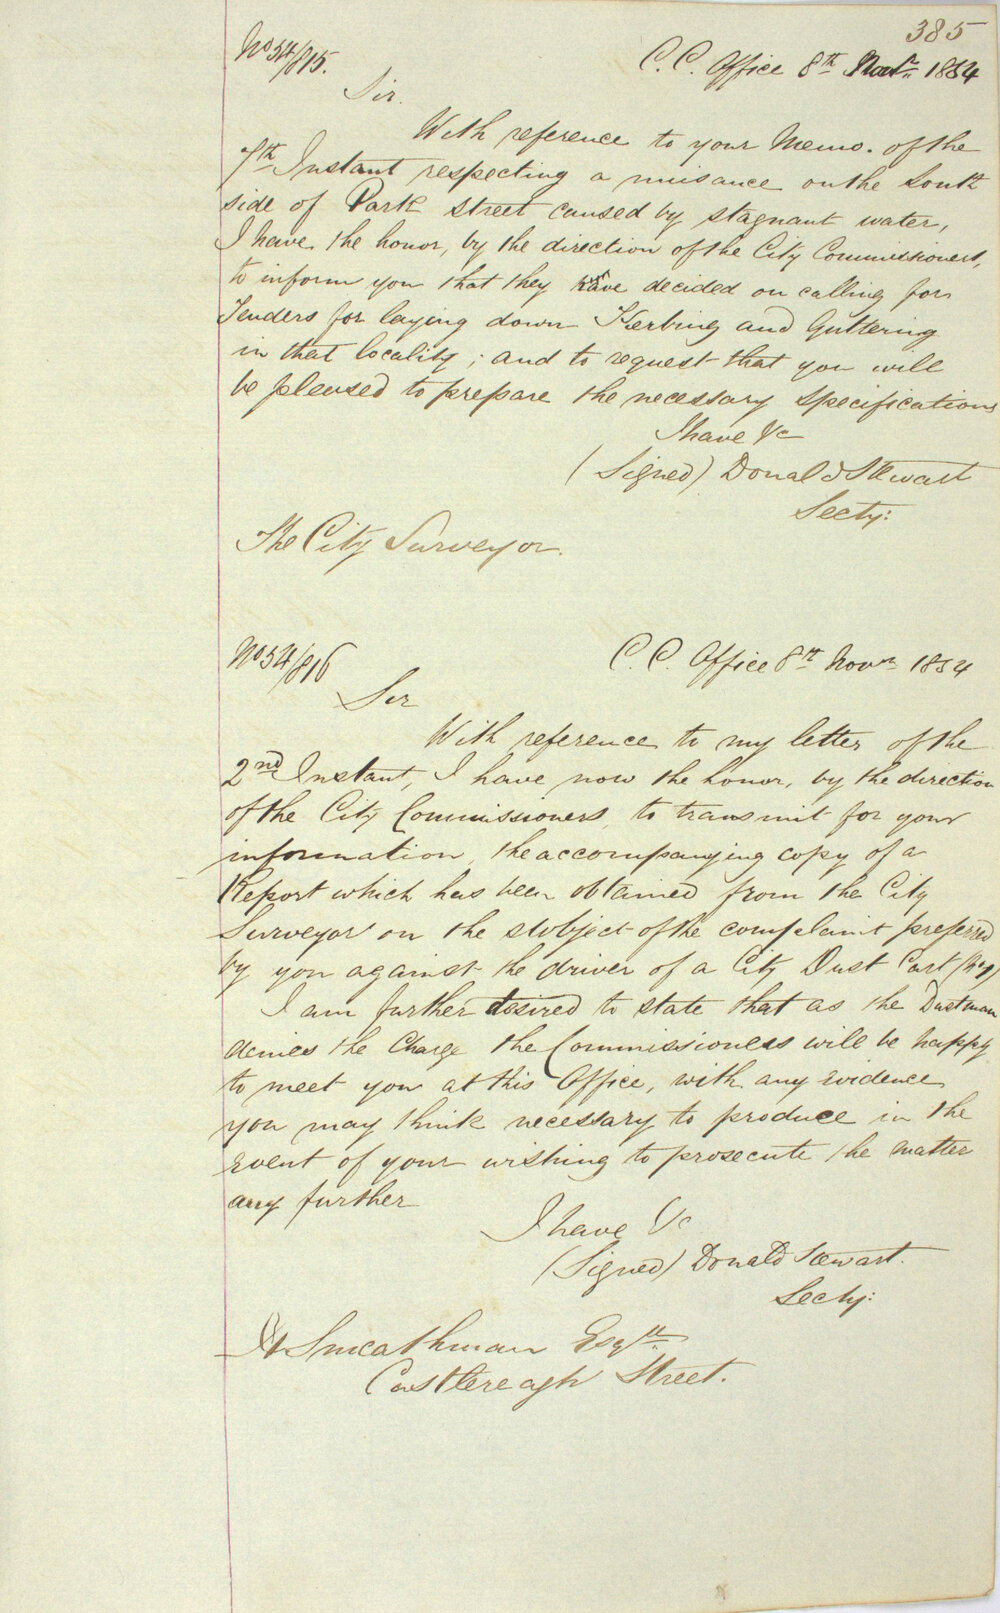 385
No 54/815.
C. C. Office 8th Novr. 1854
Sir.
With reference to your Memo. of the
7th Instant respecting a nuisance on the South
side of Park Street caused by stagnant water,
I have the honor, by the direction of the City Commissioners,
to inform you that they have decided on calling for
Tenders for laying down Kerbing and Guttering
in that locality; and to request that you will
be pleased to prepare the necessary specifications
I have &c
(Signed) Donald Stewart
Secty:
The City Surveyor.
No 54/816
C. C. Office 8th Novr 1854
Sir
With reference to my letter of the
2nd Instant, I have now the honor, by the direction
of the City Commissioners, to transmit for your
information, the accompanying copy of a
Report which has been obtained from the City
Surveyor on the subject of the complaint preferred
by you against the driver of a City Dust Cart
I am further desired to state that as the Dustman
denies the Charge the Commissioners will be happy
to meet you at this Office, with any evidence
you may think necessary to produce in the
event of your wishing to prosecute the matter
any further
I have &c
(Signed) Donald Stewart.
Secty:
Smeathman Esqre.
Castlereagh Street.